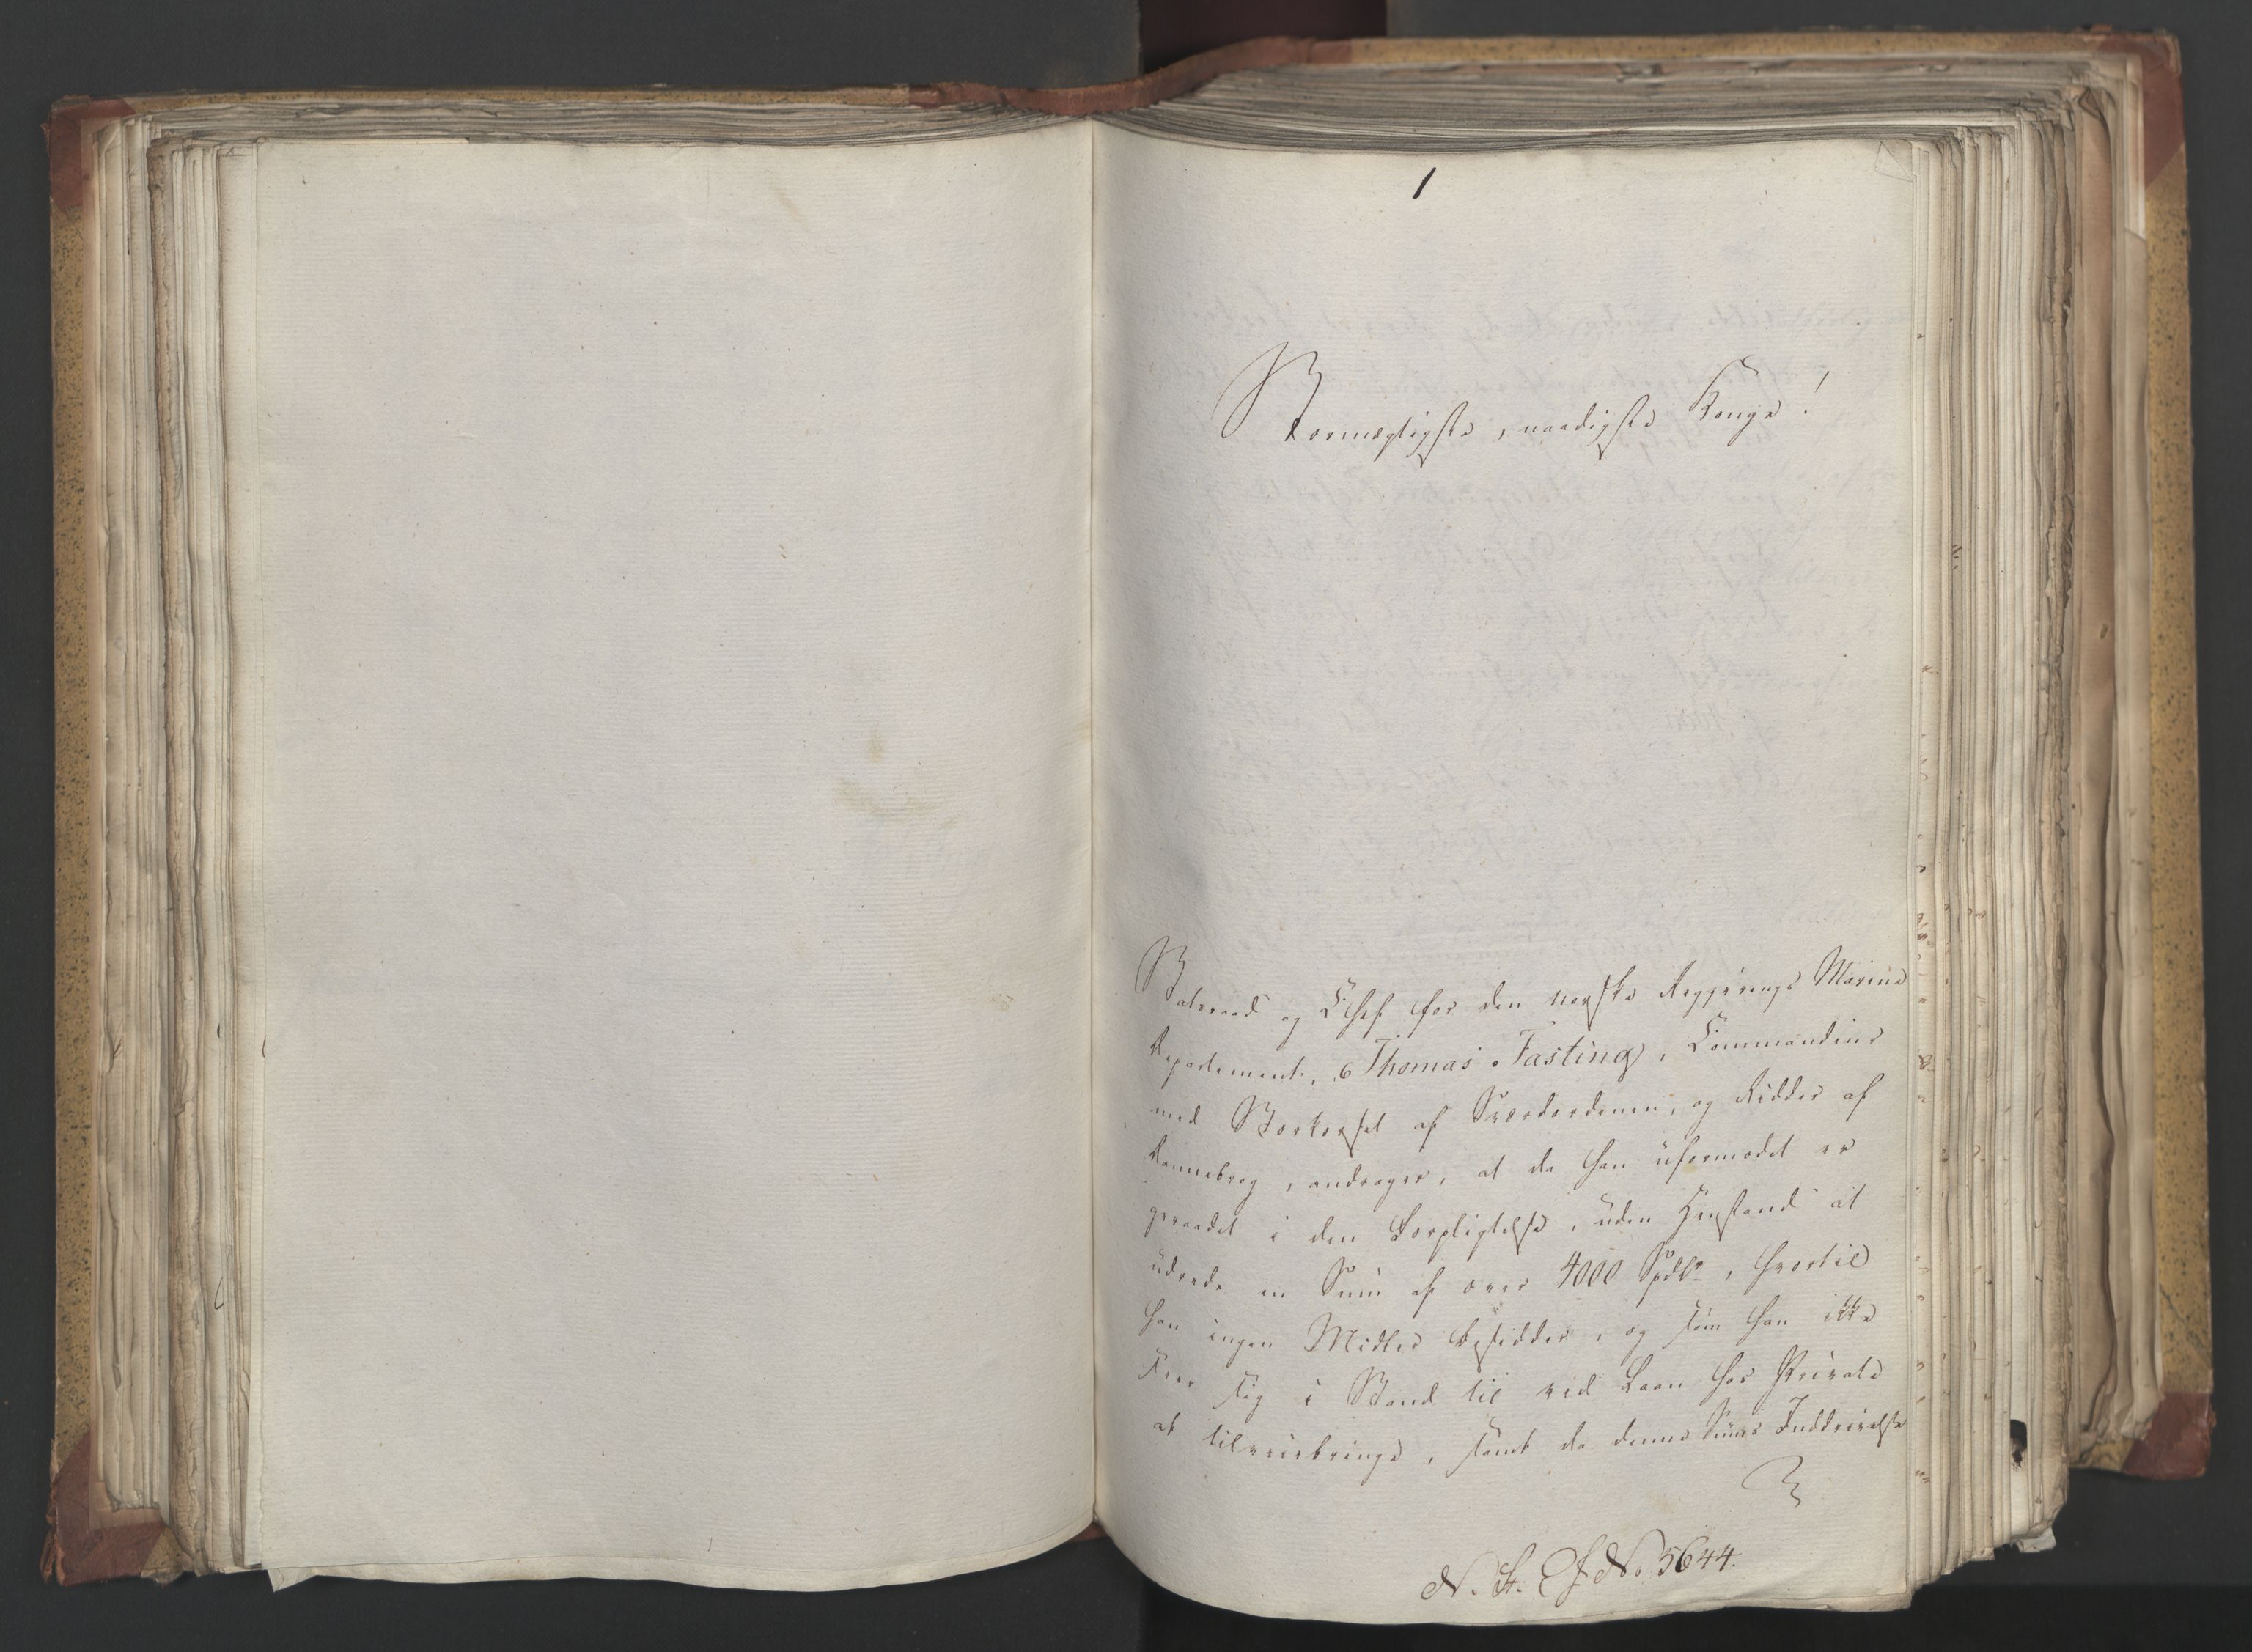 1
Stormægtigste, naadigste Konge!
Statsraad og Chef for den norske Regjerings Marine
Departement, Thomas Fasting, Commandeur
med Storkorset af Sværdordenen, og Ridder af
Dannebrog, andrager, at da han uformodet er
geraadet i den Forpligtelse, uden Henstand at
udrede en Sum af over 4000 Spdlr, hvortil
han ingen Midler besidder, og som han ikke
seer sig i Stand til ved Laan hos Private
at tilveiebringe, samt da denne Sums Inddrivelse
N. St. J No 5644.